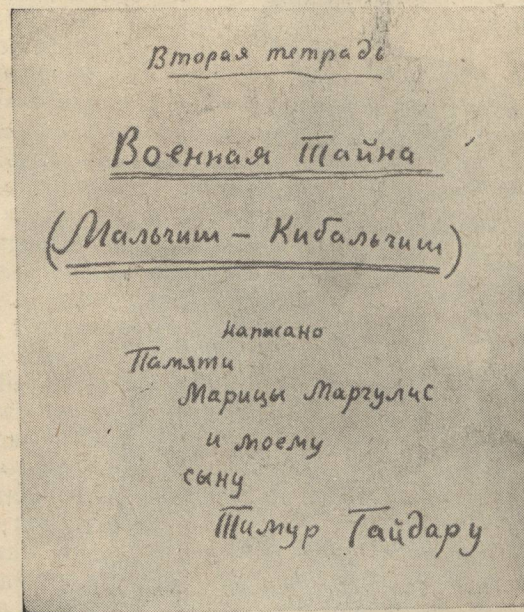 Вторая тетрадь
Военная Тайна
(Мальчиш – Кибальчиш)
написано
Памяти
Марицы Маргулис
и моему
сыну
Тимур Гайдару